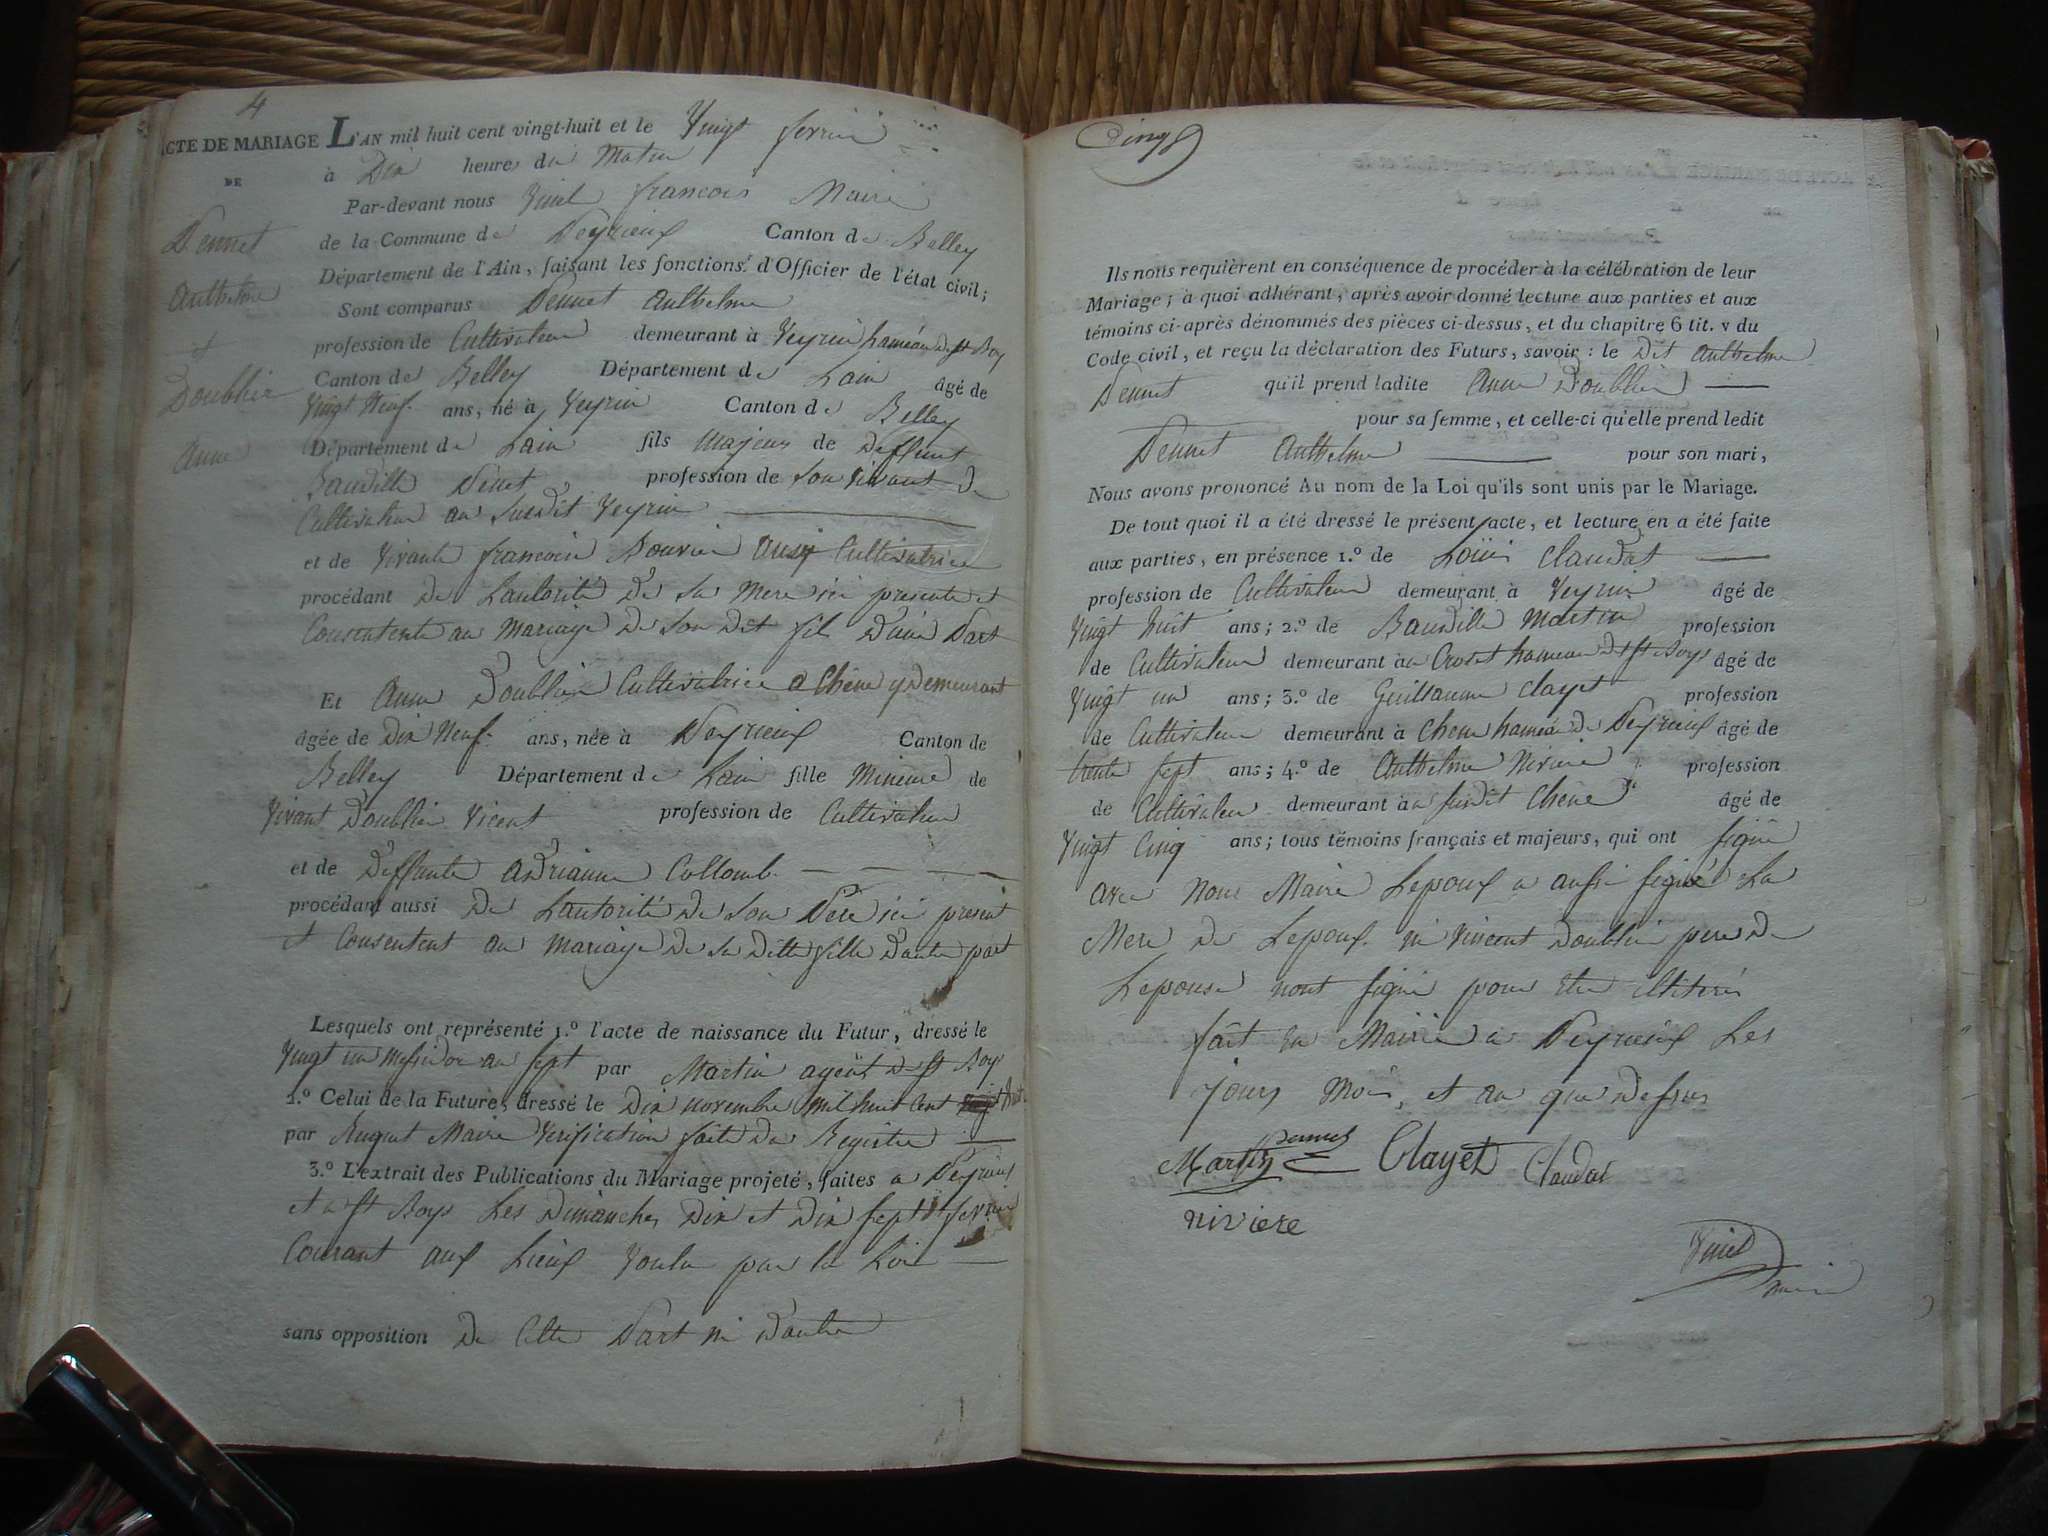 4
ACTE DE MARIAGE L'AN mil huit cent vingt-huit et le Vingt fevrier
DE
à Dix heure du Matin
Par-devant nous Vinel francois Maire
de la Commune de Peyrieux Canton de Belley
Département de l'Ain, faisant les fonctions d'Officier de l'état civil;
Pennet
Anthelme
et
Doublier
Anne
Sont comparus Pennet Anthelme
profession de Cultivateur demeurant à Veyrin hameau de st Boy
Canton de Belley Département de Lain âgé de
Vingt Neuf ans, né à Veyrin Canton de Belley
Département de Lain fils Majeur de Deffunt
Baudille Penet profession de son vivant de
Cultivateur au susdit Veyrin
et de Vivante francoise Douvrier aussy Cultivatrice
procédant De Lautorité De sa Mere ici presente et
Consentente au Mariage De son Dit fils D'une Part
Et Anne Doublier Cultivatrice a Chêne y Demeurant
âgée de Dix Neuf ans, née à Peyrieux Canton de
Belley Département de Lain fille Mineure de
Vivant Doublier Vicent profession de Cultivateur
et de Deffunte Adrianne Collomb
procédant aussi De Lautorité De son Père ici present
et Consentent au Mariage De sa Ditte fille D'autre part
Lesquels ont représenté 1.º l'acte de naissance du Futur, dressé le
Vingt un Messidor an sept par Martin agent de st Boys
2.º Celui de la Future, dressé le Dix novembre mil huit Cent huit
par Huguet Maire Verification faite du Registre
3.º L'extrait des Publications du Mariage projeté, faites a Peyrieux
et a st Boys Les Dimanches Dix et Dix sept fevrier
Courant aux Lieux Voulu par la Loi
sans opposition De Cette Part ni D'autre
Cinq
Ils nous requièrent en conséquence de procéder à la célébration de leur
Mariage; à quoi adhérant, après avoir donné lecture aux parties et aux
témoins ci-après dénommés des pièces ci-dessus, et du chapitre 6 tit. v du
Code civil, et reçu la déclaration des Futurs, savoir: le Dit Anthelme
Pennet qu'il prend ladite Anne Doublier
pour sa femme, et celle-ci qu'elle prend ledit
Pennet Anthelme pour son mari,
Nous avons prononcé Au nom de la Loi qu'ils sont unis par le Mariage.
De tout quoi il a été dressé le présent acte, et lecture en a été faite
aux parties, en présence 1.º de Loüis Claudat
profession de Cultivateur demeurant à Veyrin âgé de
Vingt huit ans; 2.º de Baudille Martin profession
de Cultivateur demeurant au Croset hameau de st Boys âgé de
Vingt un ans; 3.º de Guillaume Clayet profession
de Cultivateur demeurant à Chene hameau de Peyrieux âgé de
trente sept ans; 4.º de Anthelme Niviere profession
de Cultivateur demeurant au susdit Chêne âgé de
Vingt Cinq ans; tous témoins français et majeurs, qui ont signé
avec nous Maire Lepoux a aussi signé La
Mere De Lepoux ni Vincent Doublier pere De
Lepouse nont signé pour être illiterés
fait en Mairie a Peyrieux Les
jours Mois, et an que Dessus
Martin Pennet Clayet Claudat
niviere
Vinel
maire